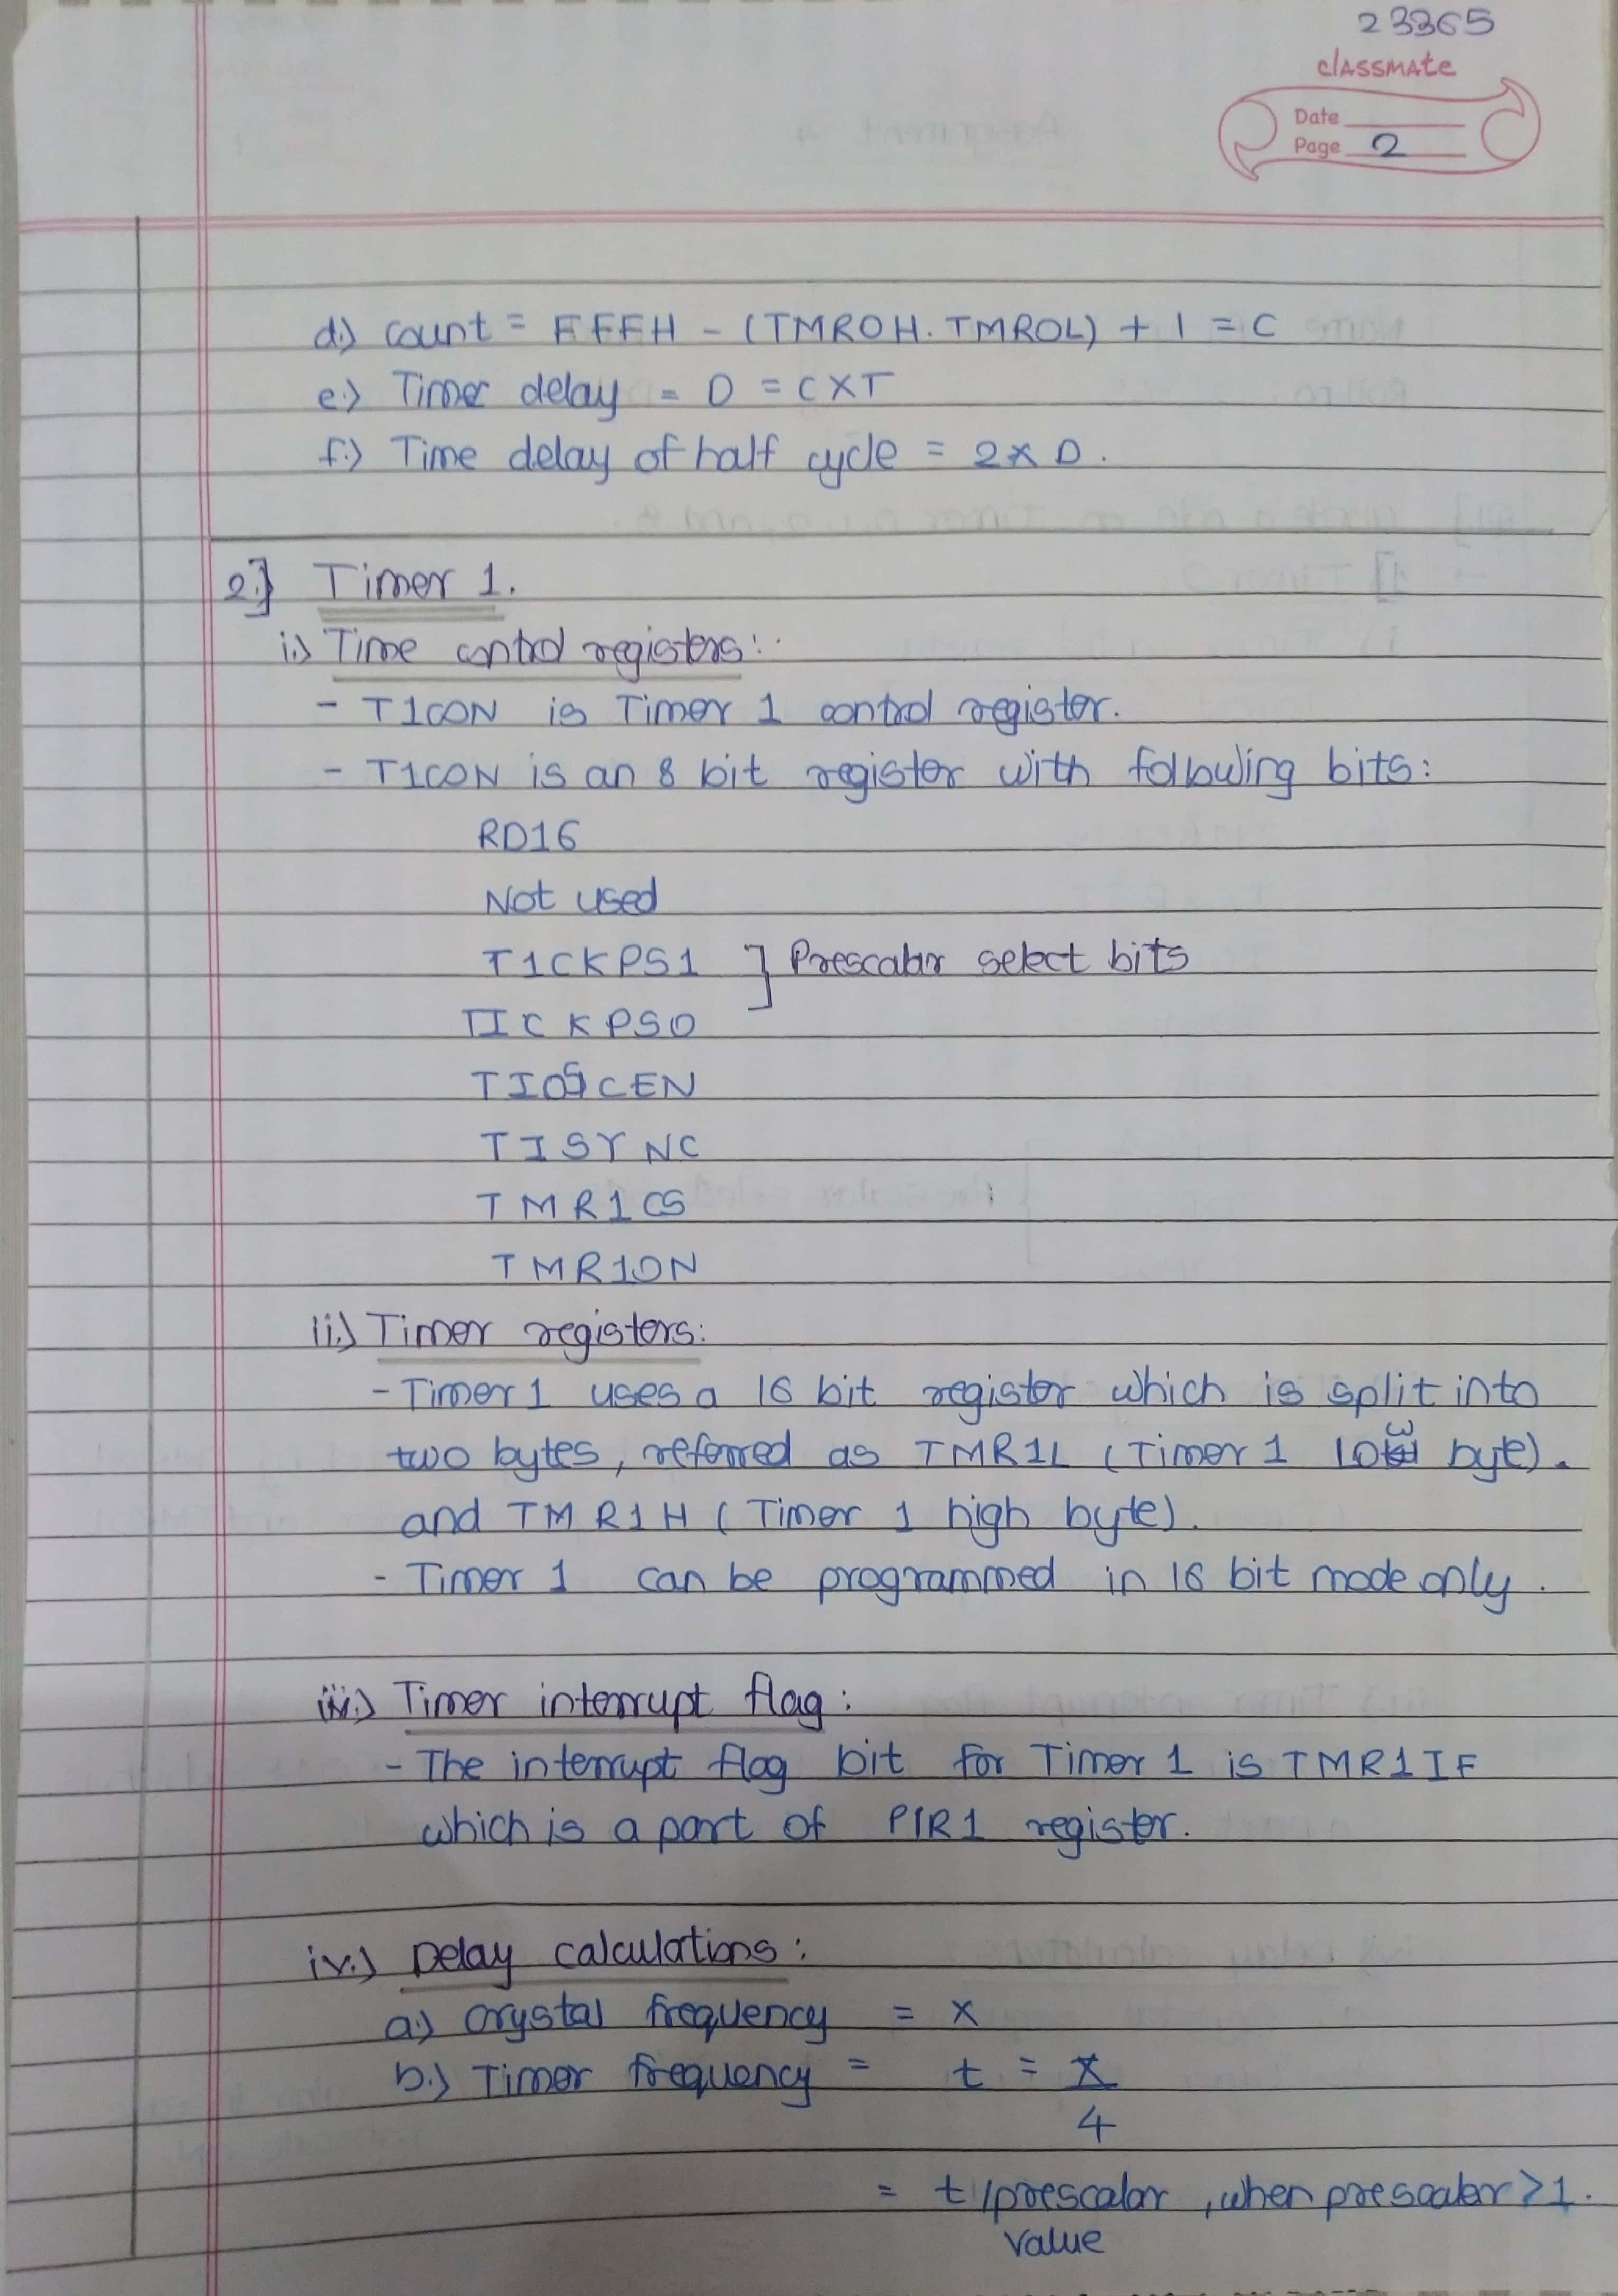 23365
classmate
Date
Page 2
d.) count = FFFH - (TMROH. TMROL) + 1 = C
e.) Timer delay = D = CXT
f.) Time delay of half cycle = 2 x D.
2.] Timer 1.
i.) Time control registers:
- T1CON is Timer 1 control register.
- T1CON is an 8 bit register with following bits:
RD16
Not used
T1CKPS1 ] Prescalar select bits
TICKPSO
TIOSCEN
TISYNC
TMR1CS
TMR1ON
ii.) Timer registers:
- Timer 1 uses a 16 bit register which is split into
two bytes, referred as TMR1L (Timer 1 low byte).
and TMR1H (Timer 1 high byte).
- Timer 1 can be programmed in 16 bit mode only.
iii.) Timer interrupt flag:
- The interrupt flag bit for Timer 1 is TMR1IF
which is a part of PIR1 register.
iv.) Delay calculations:
a.) crystal frequency = x
b.) Timer frequency = t = x
4
= t/prescalar, when prescalar > 1.
value